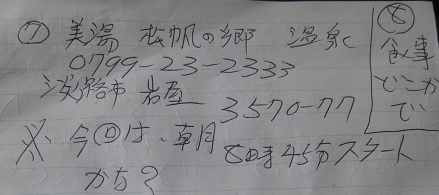 ⑦ 美湯 松帆の郷 温泉
0799-23-2333
淡路市 岩屋
3570-77
※ 今回は、朝
8時45分スタート
かな?
⑧
食事
どこか
で